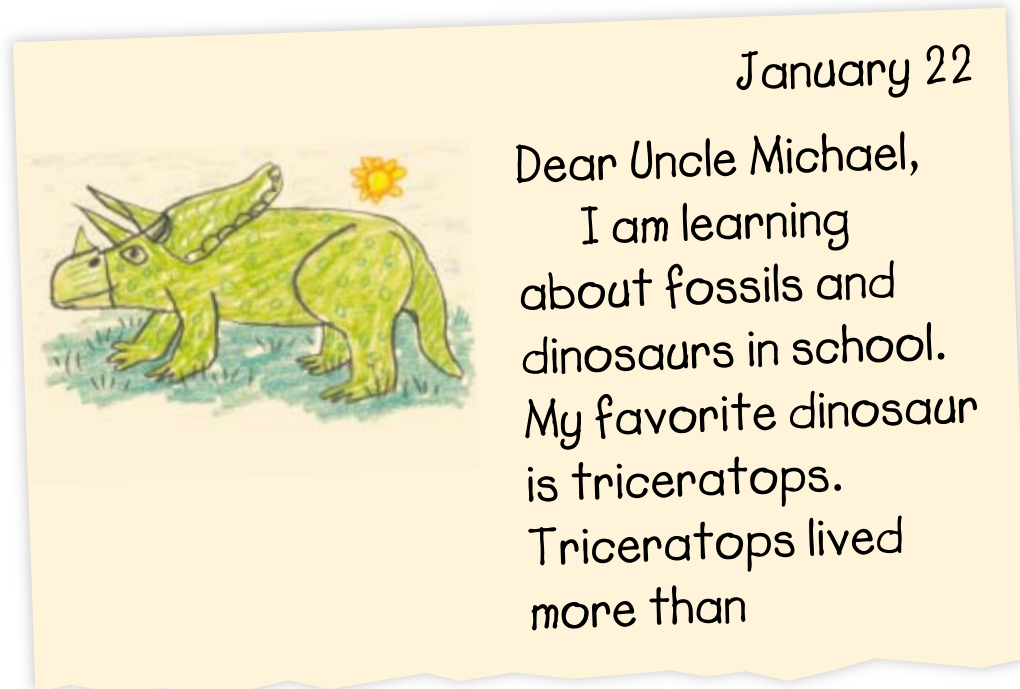 January 22
Dear Uncle Michael,
I am learning
about fossils and
dinosaurs in school.
My favorite dinosaur
is triceratops.
Triceratops lived
more than